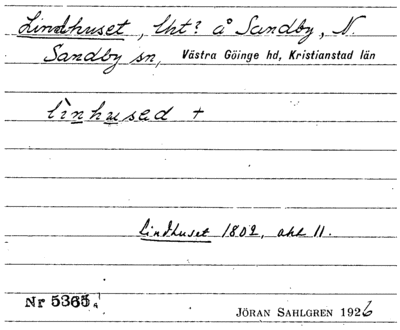 Lindhuset, lht? å Sandby, N.
Sandby sn, Västra Göinge hd, Kristianstad län
lìnhused +
Lindhuset 1802, akt 11.
Nr 5365,
JÖRAN SAHLGREN 1926